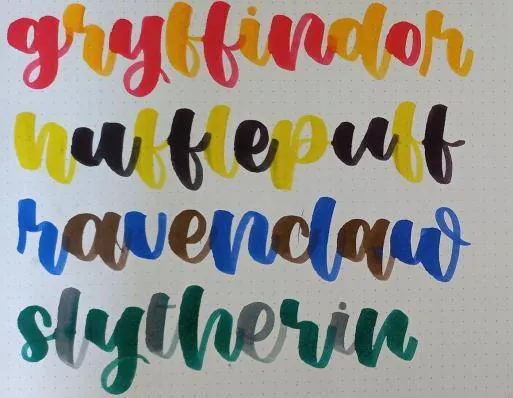 gryffindor
hufflepuff
ravenclaw
slytherin